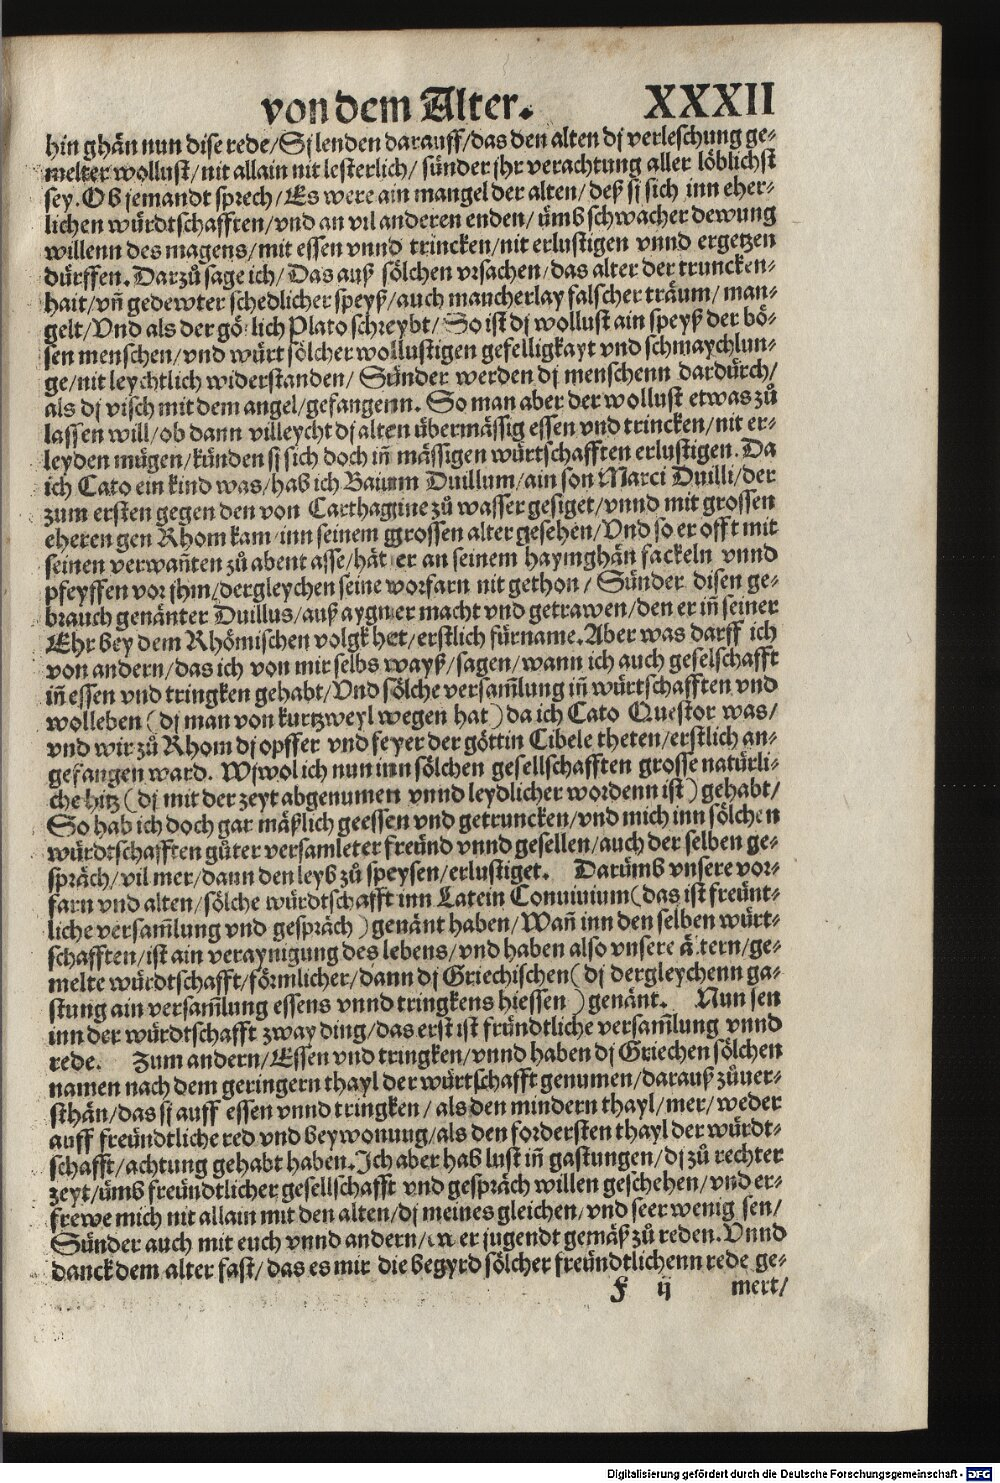 von dem Alter. XXXII
hin ghän nun dise rede/Sj lenden darauff/das den alten dj verleschung ge-
melter wollust/nit allain nit lesterlich/sünder jhr verachtung aller löblichst
sey. Ob jemandt sprech/Es were ain mangel der alten/deß sj sich inn eher-
lichen würdtschafften/vnd an vil anderen enden/ümb schwacher dewung
willenn des magens/mit essen vnnd trincken/nit erlustigen vnnd ergetzen
dürffen. Darzů sage ich/Das auß sölchen vrsachen/das alter der truncken-
hait/vñ gedewter schedlicher speyß/auch mancherlay falscher träum/man-
gelt/Vnd als der gö lich Plato schreybt/So ist dj wollust ain speyß der bö-
sen menschen/vnd würt sölcher wollustigen gefelligkayt vnd schmaychlun-
ge/nit leychtlich widerstanden/Sünder werden dj menschenn dardürch/
als dj visch mit dem angel/gefangenn. So man aber der wollust etwas zů
lassen will/ob dann villeycht dj alten übermässig essen vnd trincken/nit er-
leyden mügen/künden sj sich doch iñ mässigen würtschafften erlustigen. Da
ich Cato ein kind was/hab ich Duillum/ain son Marci Duilli/der
zum ersten gegen den von Carthagine zů wasser gesiget/vnnd mit grossen
eheren gen Rhom kam/inn seinem ggrossen alter gesehen/Vnd so er offt mit
seinen verwañten zů abent asse/hät er an seinem haymghän fackeln vnnd
pfeyffen vor jhm/dergleychen seine vorfarn nit gethon/Sünder disen ge-
brauch genänter Duillus/auß aygner macht vnd getrawen/den er iñ seiner
Ehr bey dem Rhömischen volgk het/erstlich fürname. Aber was darff ich
von andern/das ich von mir selbs wayß/sagen/wann ich auch geselschafft
iñ essen vnd tringken gehabt/Vnd sölche versam̃lung iñ würtschafften vnd
wolleben (dj man von kurtzweyl wegen hat) da ich Cato Questor was/
vnd wir zů Rhom dj opffer vnd feyer der göttin Cibele theten/erstlich an-
gefangen ward. Wjwol ich nun inn sölchen gesellschafften grosse natürli-
che hitz (dj mit der zeyt abgenumen vnnd leydlicher wordenn ist) gehabt/
So hab ich doch gar mäßlich geessen vnd getruncken/vnd mich inn sölchen
würdtschafften gůter versamleter freünd vnnd gesellen/auch der selben ge-
spräch/vil mer/dann den leyb zů speysen/erlustiget. Darümb vnsere vor-
farn vnd alten/sölche würdtschafft inn Latein Conuiuium (das ist freünt-
liche versam̃lung vnd gespräch) genänt haben/Wañ inn den selben würt-
schafften/ist ain veraynigung des lebens/vnd haben also vnsere ältern/ge-
melte würdtschafft/förmlicher/dann dj Griechischen (dj dergleychenn ga-
stung ain versam̃lung essens vnnd tringkens hiessen) genänt. Nun sen
inn der würdtschafft zway ding/das erst ist fründtliche versam̃lung vnnd
rede. Zum andern/Essen vnd tringken/vnnd haben dj Griechen sölchen
namen nach dem geringern thayl der würtschafft genumen/darauß zůuer-
sthän/das sj auff essen vnnd tringken/als den mindern thayl/mer/weder
auff freündtliche red vnd beywonung/als den fordersten thayl der würdt-
schafft/achtung gehabt haben. Ich aber hab lust iñ gastungen/dj zů rechter
zeyt/ümb freündtlicher gesellschafft vnd gespräch willen geschehen/vnd er-
frewe mich nit allain mit den alten/dj meines gleichen/vnd seer wenig sen/
Sünder auch mit euch vnnd andern/ewer jugendt gemäß zů reden. Vnnd
danck dem alter fast/das es mir die begyrd sölcher freündtlichenn rede ge-
f ij mert/
Digitalisierung gefördert durch die Deutsche Forschungsgemeinschaft - DFG